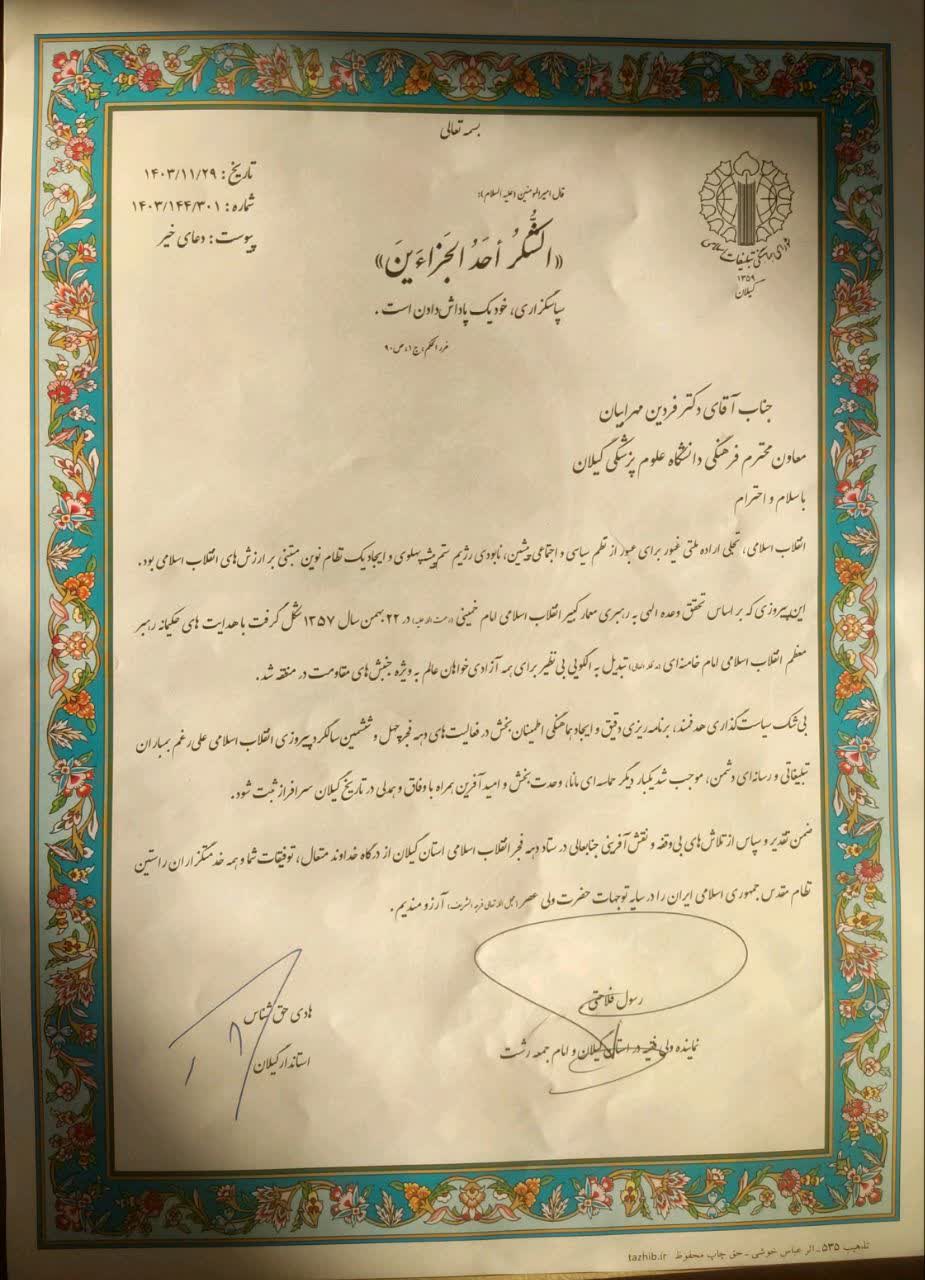 بسمه تعالی
تاریخ : ۱۴۰۳/۱۱/۲۹
شماره : ۱۴۰۳/۱۴۴/۳۰۱
پیوست : دعای خیر
شورای هماهنگی تبلیغات اسلامی
۱۳۵۹
گیلان
قال امیرالمومنین (علیه السلام):
«الشُّکرُ أحَدُ الجَزاءَینَ»
سپاسگزاری، خود یک پاداش دادن است .
غرر الحکم، ج ۱، ص ۹۰
جناب آقای دکتر فردین مهرابیان
معاون محترم فرهنگی دانشگاه علوم پزشکی گیلان
با سلام و احترام
انقلاب اسلامی، تجلی اراده ملتی غیور برای عبور از ظلم سیاسی و اجتماعی پیشین، نابودی رژیم ستم‌پیشه پهلوی و ایجاد یک نظام نوین مبتنی بر ارزش‌های انقلاب اسلامی بود.
این پیروزی که بر اساس تحقق وعده الهی به رهبری معمار کبیر انقلاب اسلامی امام خمینی (رحمت الله علیه) در ۲۲ بهمن سال ۱۳۵۷ شکل گرفت با هدایت های حکیمانه رهبر
معظم انقلاب اسلامی امام خامنه‌ای (مد ظله العالی) تبدیل به الگویی بی‌نظیر برای همه آزادی‌خواهان عالم به ویژه جنبش‌های مقاومت در منطقه شد.
بی‌شک سیاست‌گذاری هدفمند، برنامه‌ریزی دقیق و ایجاد هماهنگی اطمینان‌بخش در فعالیت‌های دهه فجر چهل و ششمین سالگرد پیروزی انقلاب اسلامی علی‌رغم بمباران
تبلیغاتی و رسانه‌ای دشمن، موجب شد یکبار دیگر حماسه ای مانا، وحدت‌بخش و امیدآفرین همراه با وفاق و همدلی در تاریخ گیلان سرافراز ثبت شود.
ضمن تقدیر و سپاس از تلاش‌های بی‌وقفه و نقش‌آفرینی جنابعالی در ستاد دهه فجر انقلاب اسلامی استان گیلان از درگاه خداوند متعال، توفیقات شما و همه خدمتگزاران راستین
نظام مقدس جمهوری اسلامی ایران را در سایه توجهات حضرت ولی عصر (عجل الله تعالی فرجه الشریف) آرزومندیم .
رسول فلاحتی
نماینده ولی فقیه در استان گیلان و امام جمعه رشت
هادی حق شناس
استاندار گیلان
تذهیب ۵۳۵ - اثر عباس خوشی - حق چاپ محفوظ tazhib.ir